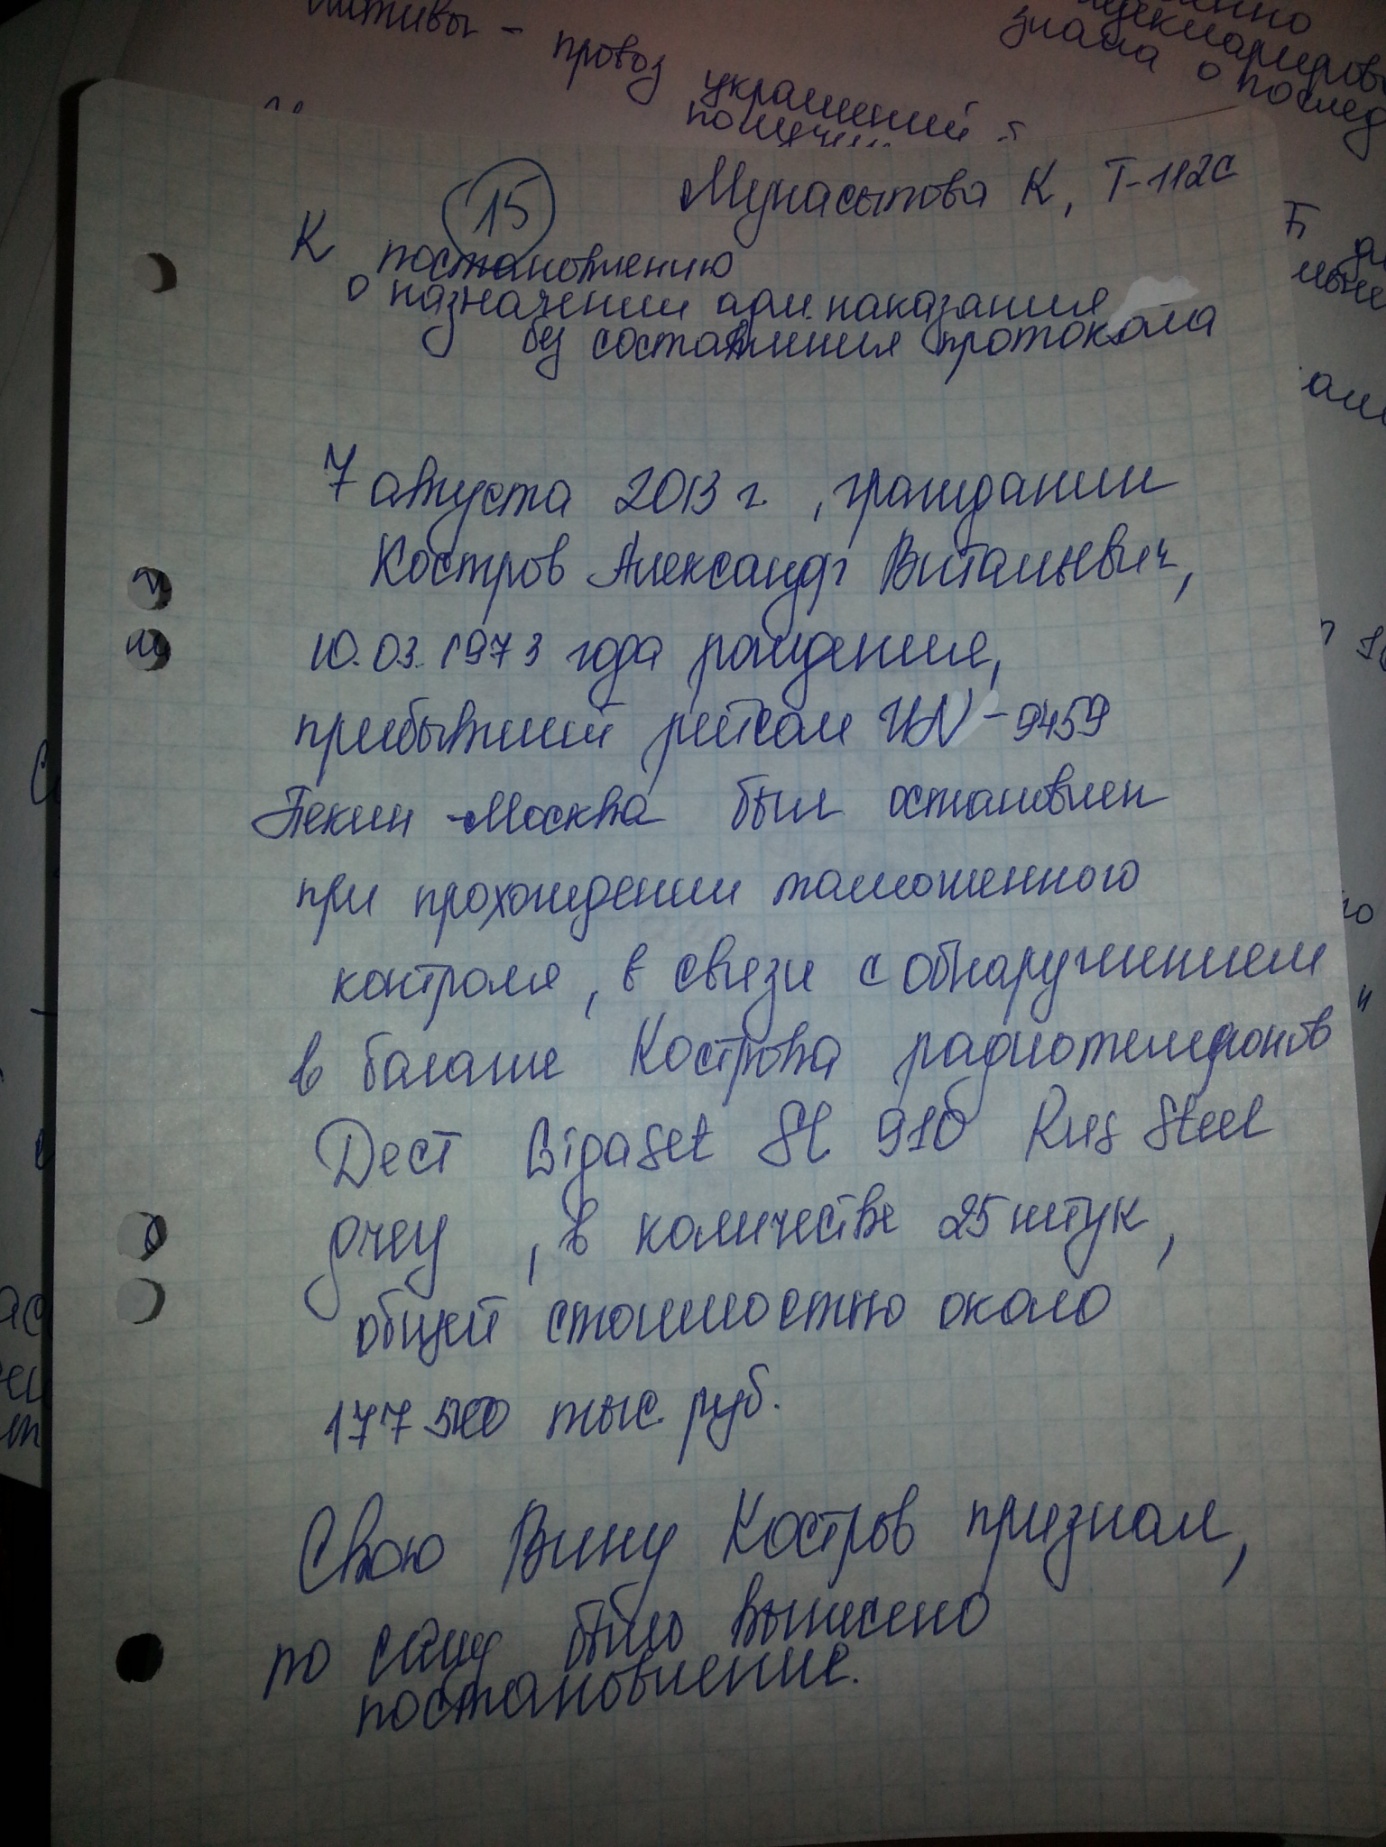 провоз украшений
Мунасыпова К, Т-112С
15
К постановлению
о назначении адм. наказания
без составления протокола
7 августа 2013 г. , гражданин
Костров Александр Витальевич,
10.03.1973 года рождения,
прибывший рейсом UN-9459
Пекин-Москва был остановлен
при прохождении таможенного
контроля, в связи с обнаружением
в багаже Кострова радиотелефонов
Дест Gigaset Sl 910 Rus Steel
, в количестве 25 штук,
общей стоимостью около
177 500 тыс. руб.
Свою Вину Костров признал,
по было вынесено
постановление.